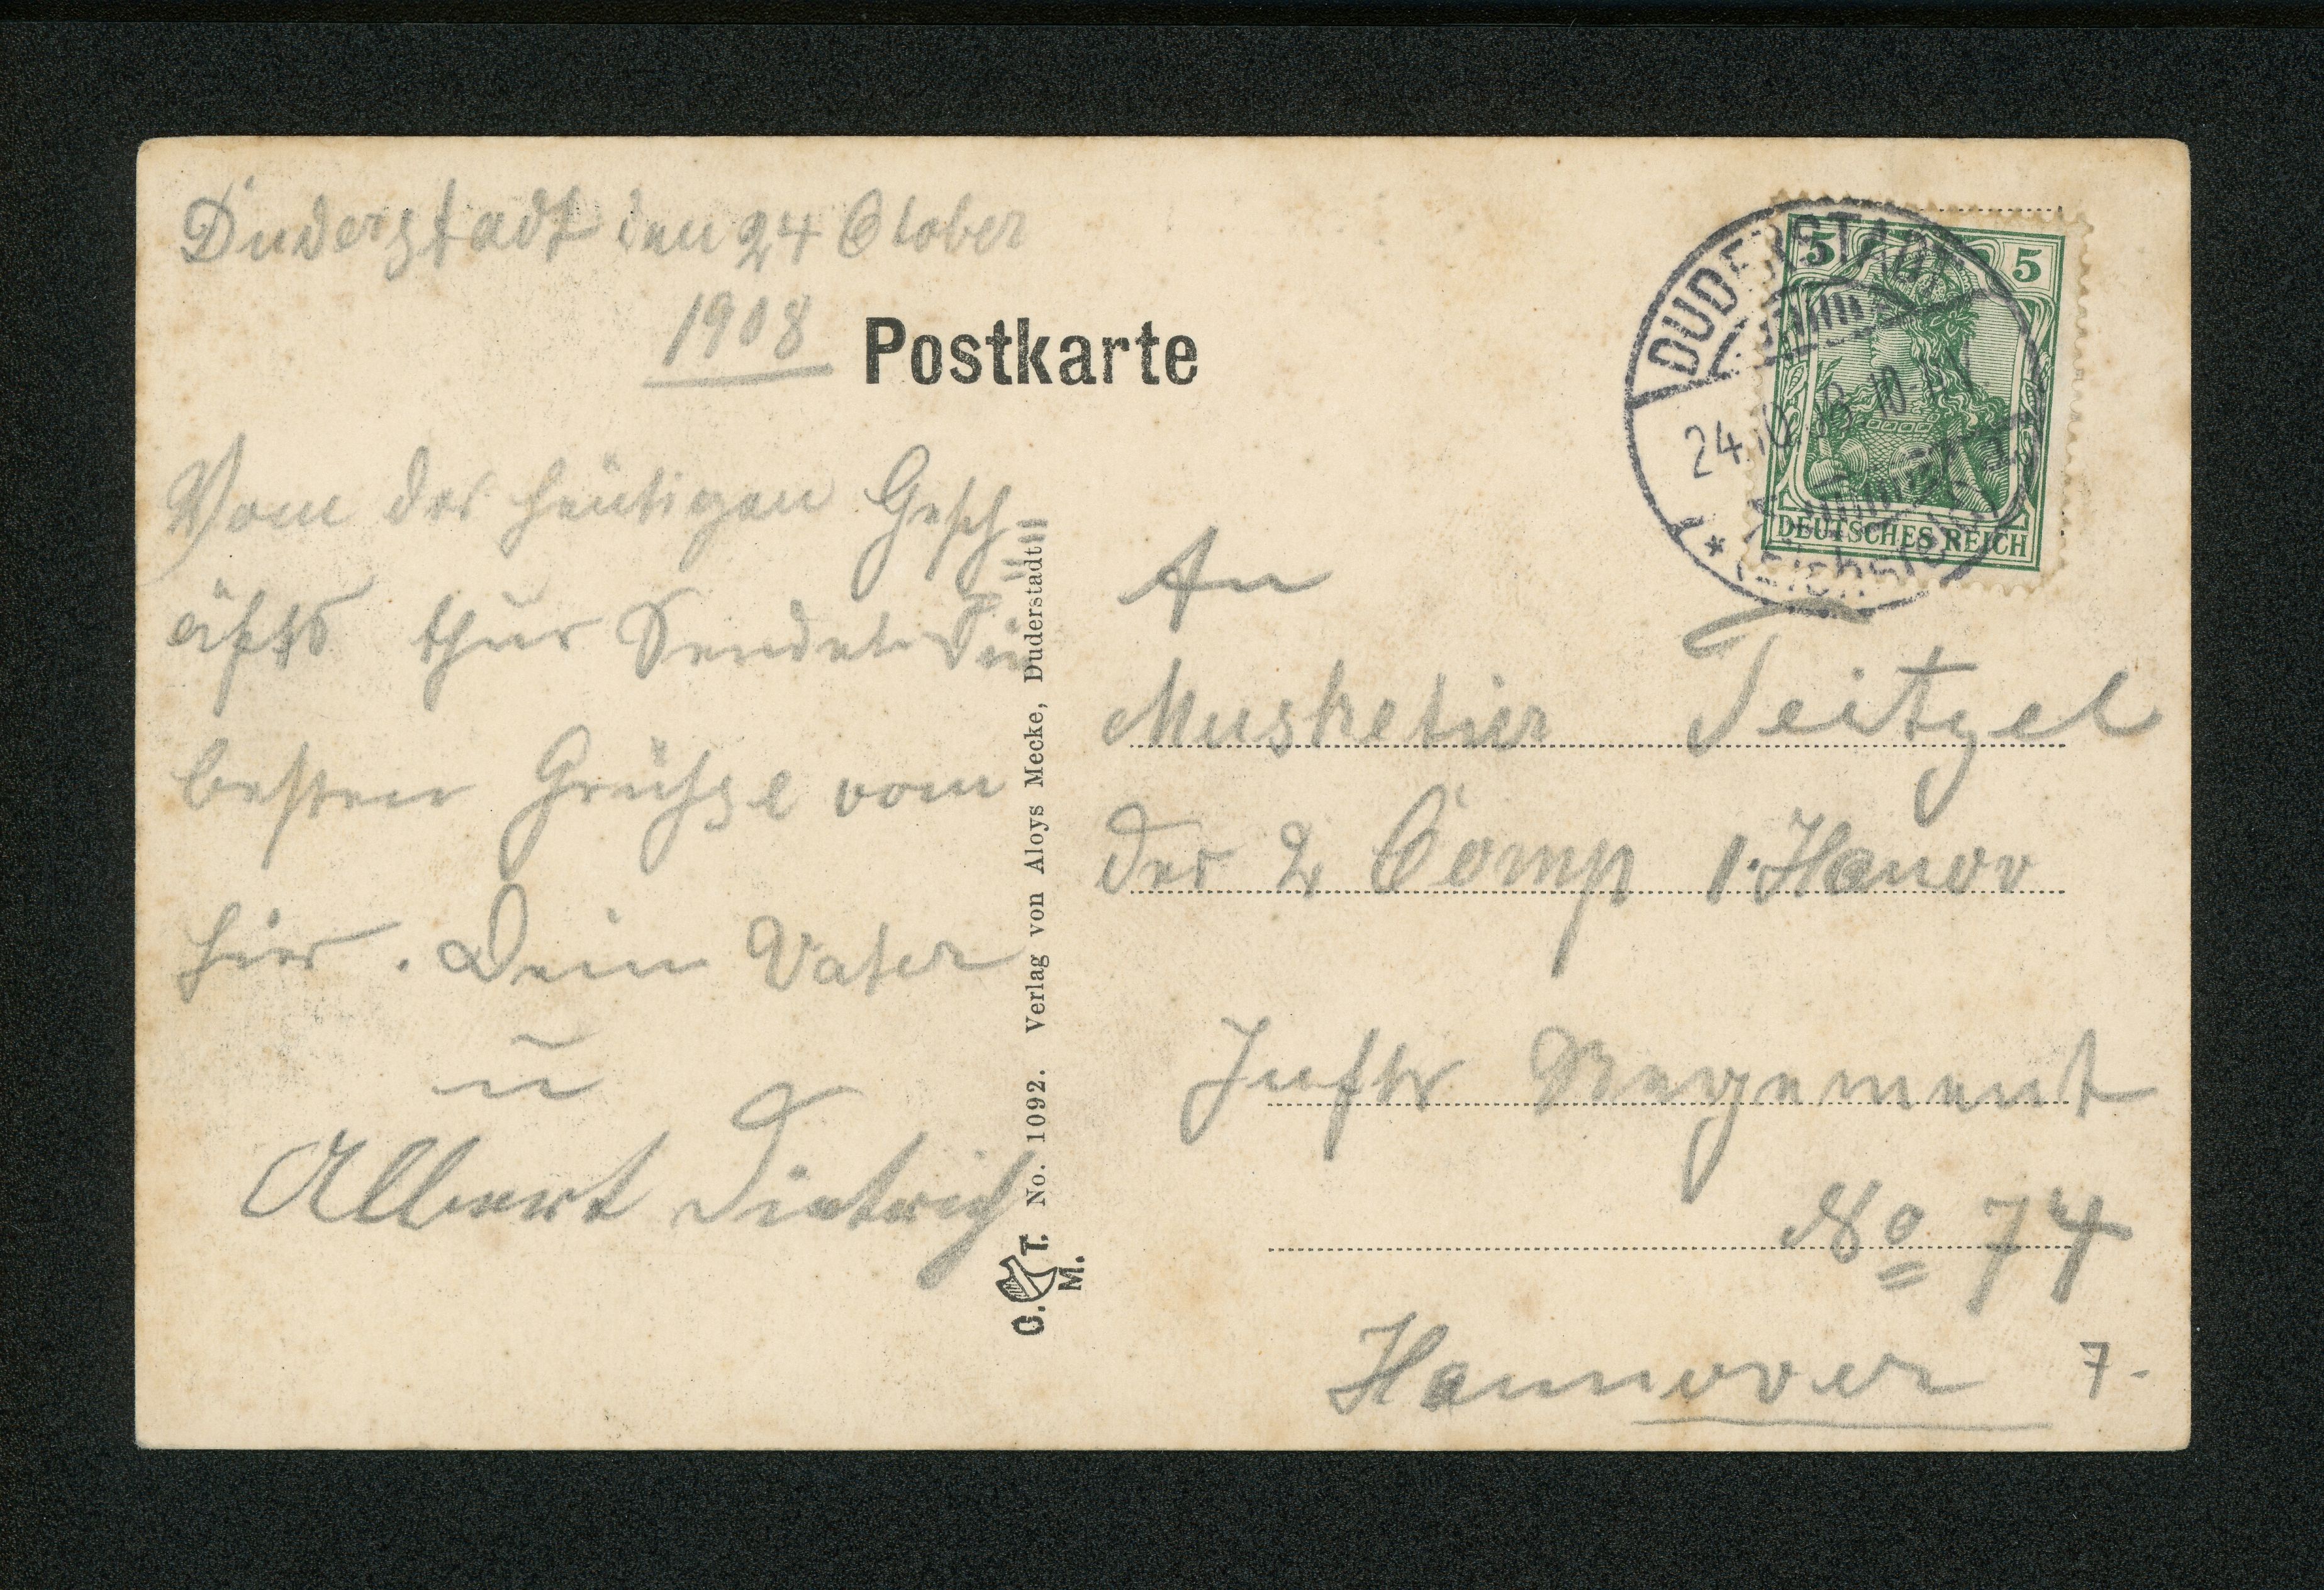 Duderstadt den 24 Otober
1908
Postkarte
Vom der heutigen Gesch=
äfts thur Sendet Die
besten Grühsse vom
hier. Dein Vater
u
Albert Dietrich
C.T.M. No. 1092. Verlag von Aloys Mecke, Duderstadt.
DUDERSTADT
24.10.08.10-11V
(Eichsfeld)
5 5
DEUTSCHES REICH
An
Musketier Teitzel
der 2 Comp 1. Hanov
Inftr Regement
No 74
Hannover
7-